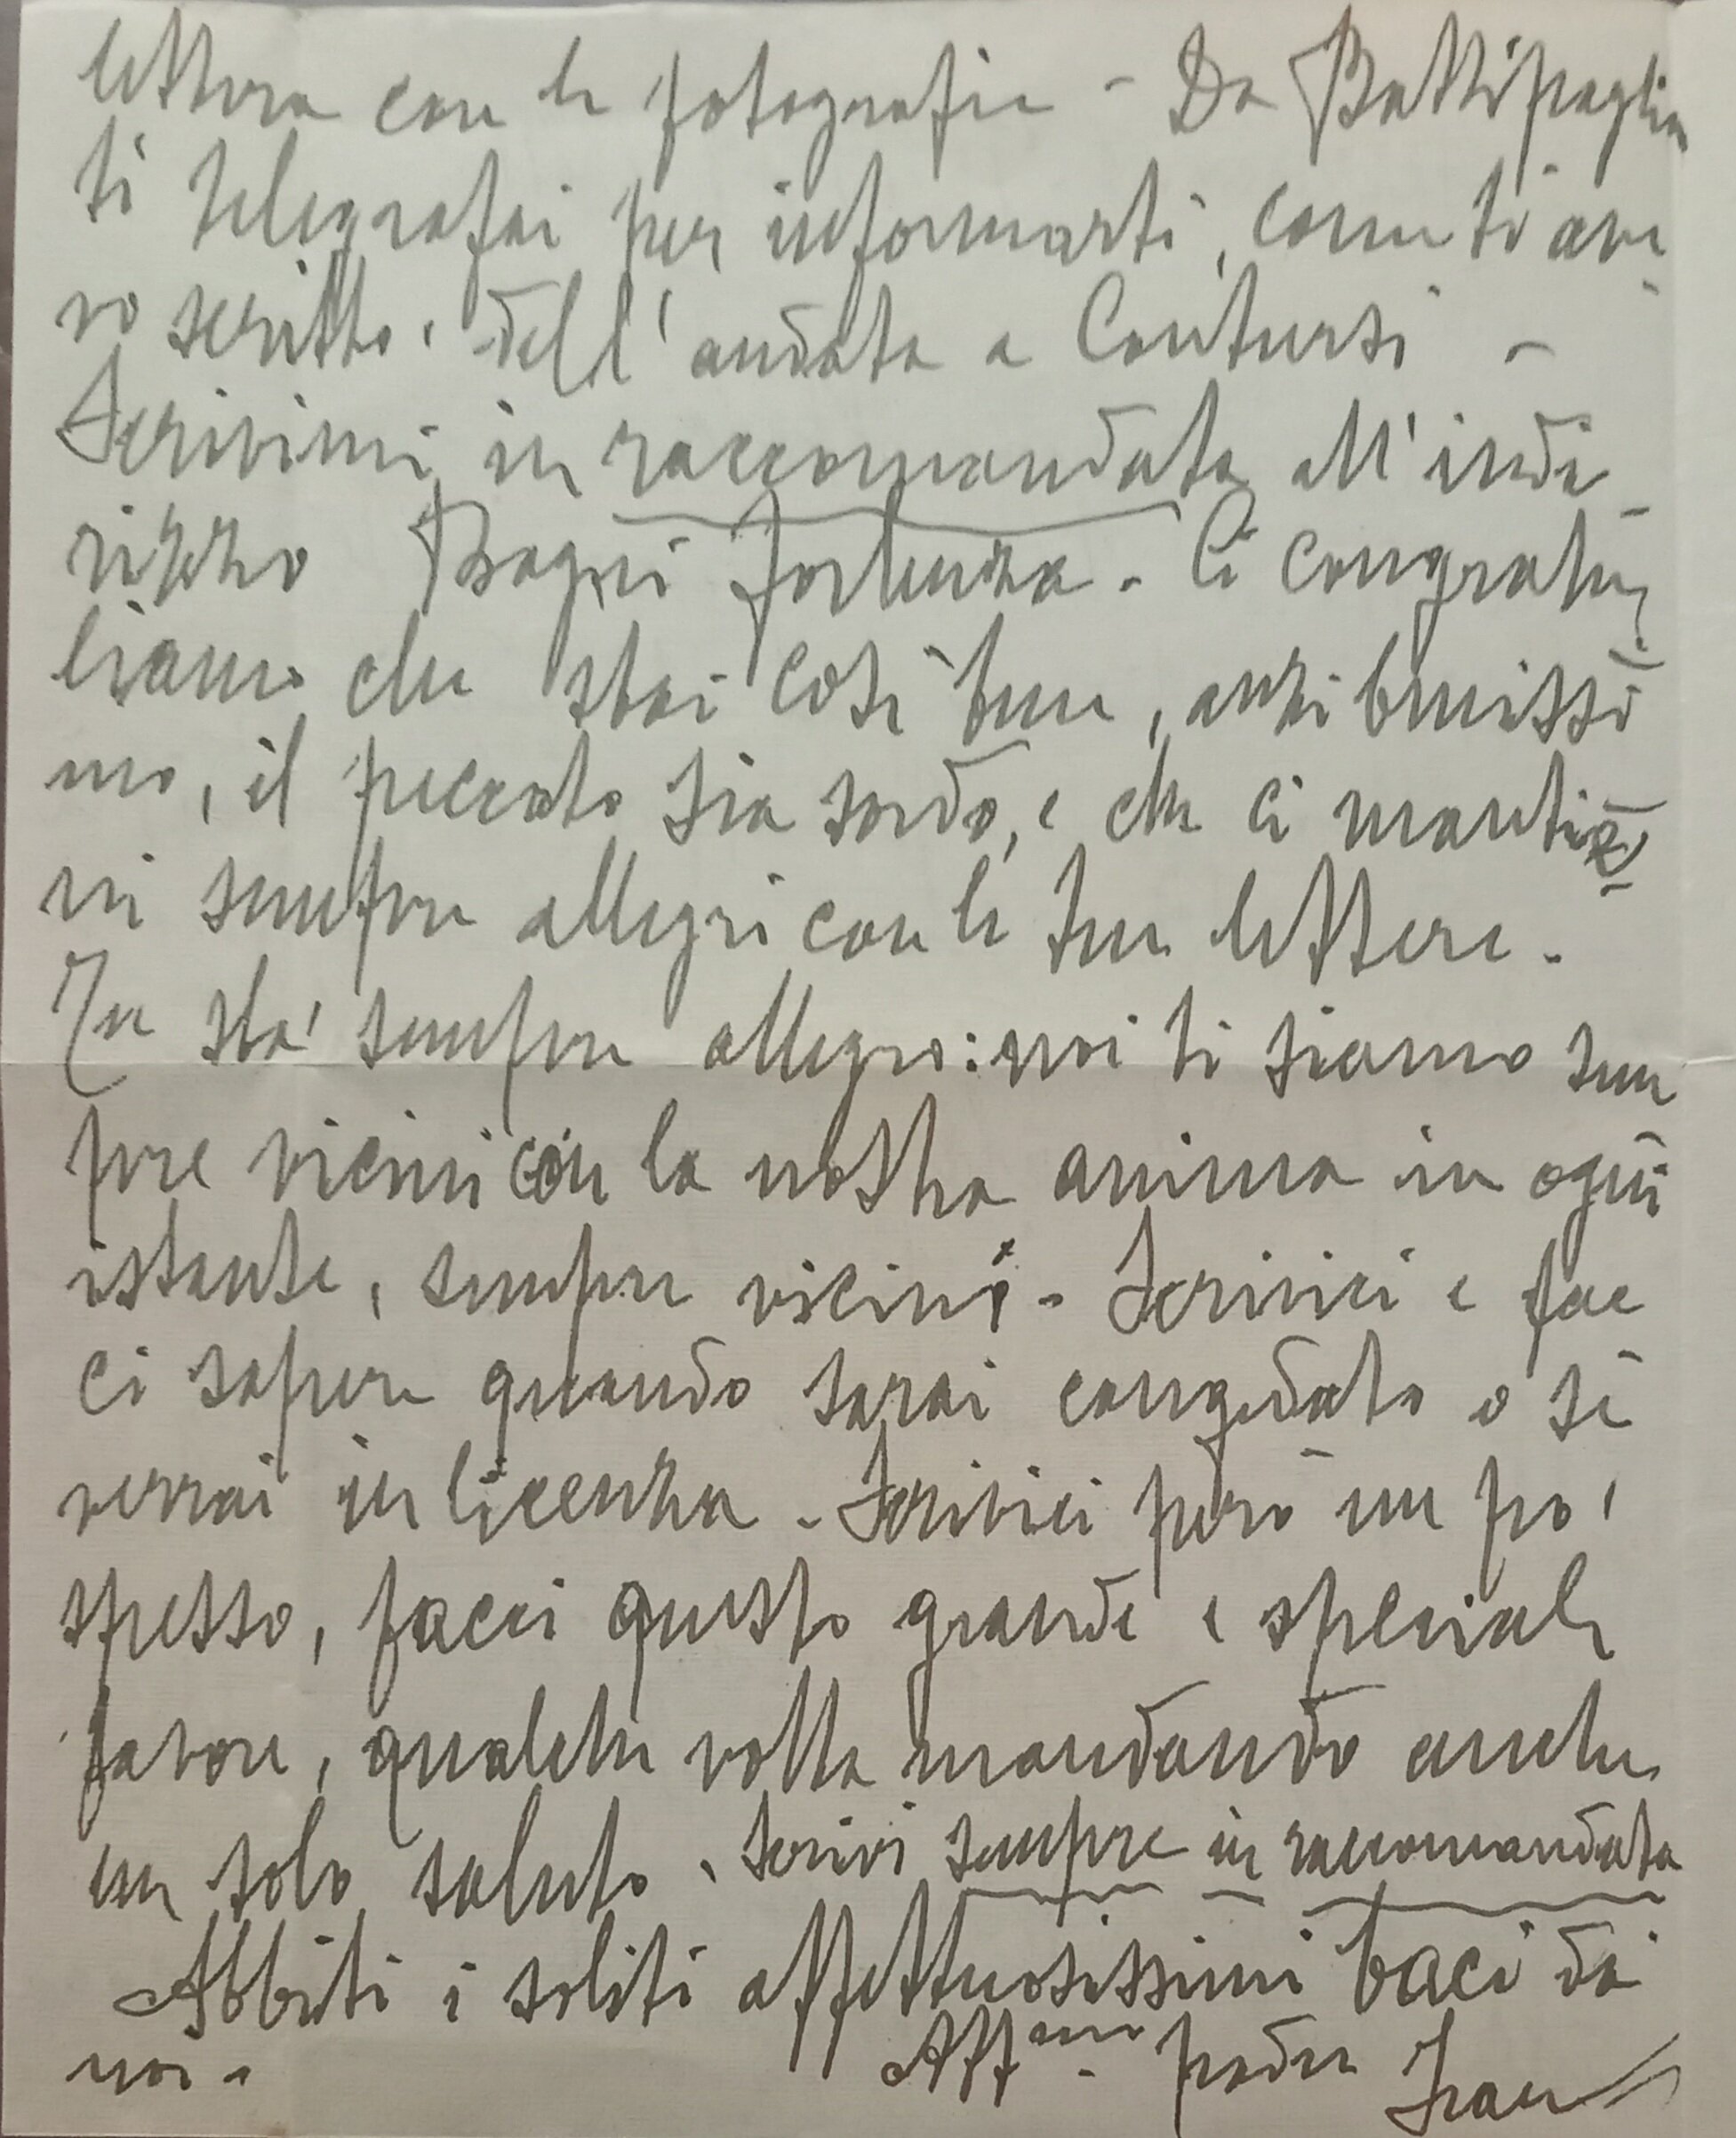 lettera con le fotografie - Da Battipaglia
ti telegrafai per informarti, come ti ave-
vo scritto, dell'andata a Contursi -
Scrivimi in raccomandata all'indi-
rizzo Bagni Forlenza - Ci congratu-
liamo che stai così bene, anzi benissi-
mo, il peccato sia sordo, e che ci mantie-
ni sempre allegri con le tue lettere -
Tu sta' sempre allegro: noi ti siamo sem
pre vicini con la nostra anima in ogni
istante, sempre vicini - Scrivici e fac
ci sapere quando sarai congedato o se
verrai in licenza - Scrivici però un po'
spesso, facci questo grande e speciale
favore, qualche volta mandando anche
un solo saluto. Scrivi sempre in raccomandata
Abbiti i soliti affettuosissimi baci da
noi - Aff.mo padre